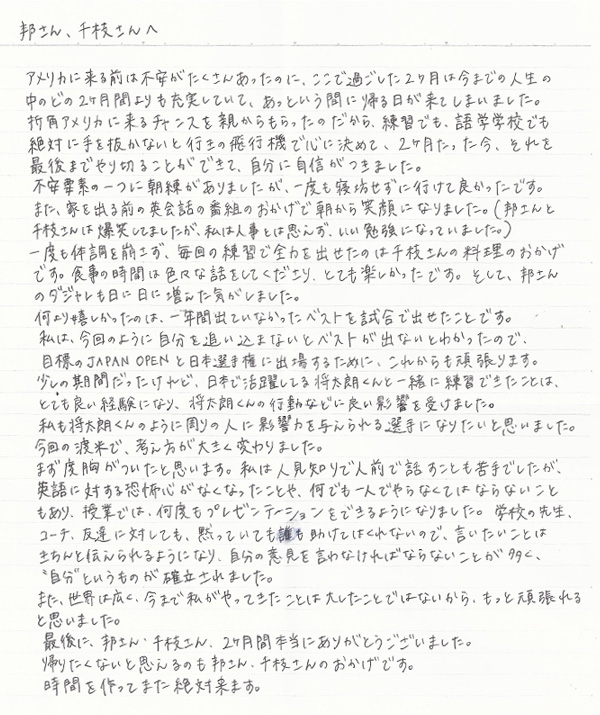 邦さん、千枝さんへ
アメリカに来る前は不安がたくさんあったのに、ここで過ごした2ヶ月は今までの人生の
中のどの2ヶ月間よりも充実していて、あっという間に帰る日が来てしまいました。
折角アメリカに来るチャンスを親からもらったのだから、練習でも、語学学校でも
絶対に手を抜かないと行きの飛行機で心に決めて、2ヶ月たった今、それを
最後までやり切ることができて、自分に自信がつきました。
不安要素の一つに朝練がありましたが、一度も寝坊せずに行けて良かったです。
また、家を出る前の英会話の番組のおかげで朝から笑顔になりました。(邦さんと
千枝さんは爆笑してましたが、私は人事とは思えず、いい勉強になっていました。)
一度も体調を崩さず、毎回の練習で全力を出せたのは千枝さんの料理のおかげ
です。食事の時間は色々な話をしてくださり、とても楽しかったです。そして、邦さん
のダジャレも日に日に増えた気がしました。
何より嬉しかったのは、一年間出ていなかったベストを試合で出せたことです。
私は、今回のように自分を追い込まないとベストが出ないとわかったので、
目標のJAPAN OPENと日本選手権に出場するために、これからも頑張ります。
少しの期間だったけれど、日本で活躍してる将太朗くんと一緒に練習できたことは、
とても良い経験になり、将太朗くんの行動などに良い影響を受けました。
私も将太朗くんのように周りの人に影響力を与えられる選手になりたいと思いました。
今回の渡米で、考え方が大きく変わりました。
まず度胸がついたと思います。私は人見知りで人前で話すことも苦手でしたが、
英語に対する恐怖心がなくなったことや、何でも一人でやらなくてはならないこと
もあり、授業では、何度もプレゼンテーションをできるようになりました。学校の先生、
コーチ、友達に対しても、黙っていても誰も助けてはくれないので、言いたいことは
きちんと伝えられるようになり、自分の意見を言わなければならないことが多く、
"自分"というものが確立されました。
また、世界は広く、今まで私がやってきたことは大したことではないから、もっと頑張れる
と思いました。
最後に、邦さん・千枝さん、2ヶ月間本当にありがとうございました。
帰りたくないと思えるのも邦さん、千枝さんのおかげです。
時間を作ってまた絶対来ます。